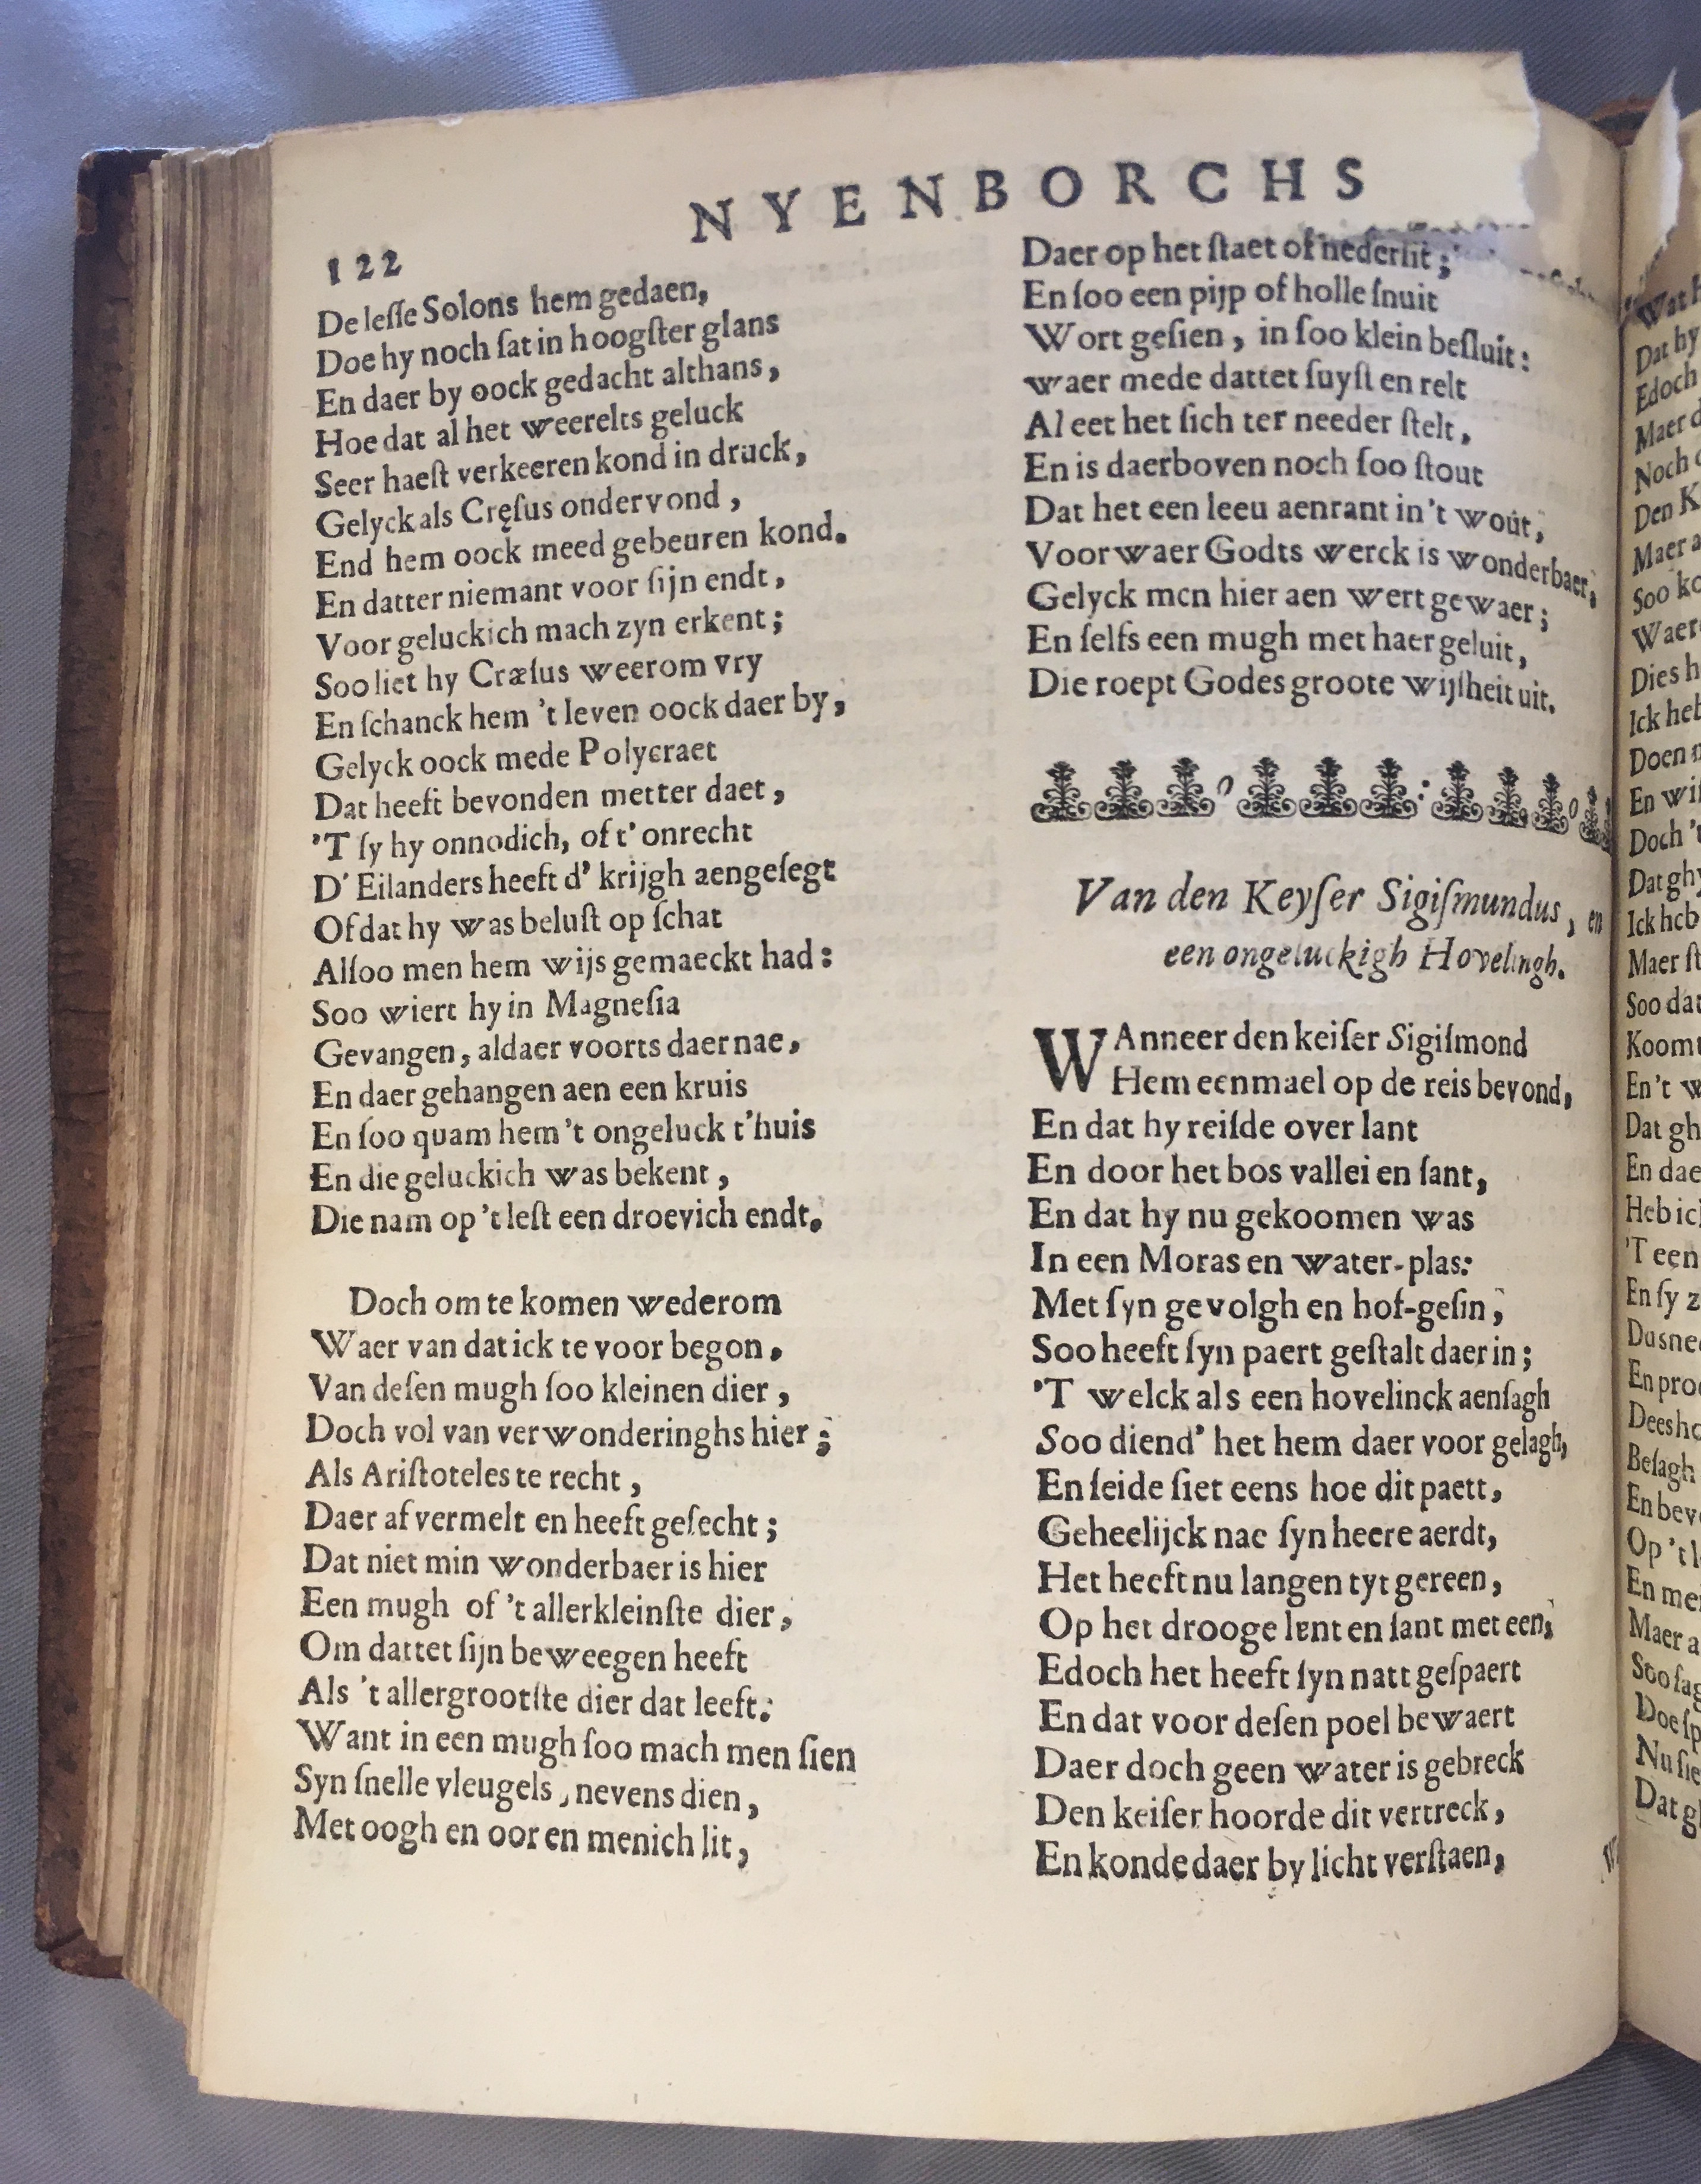 NYENBORCHS
122
De lesſe Solons hem gedaen,
Doe hy noch ſat in hoogſter glans
En daer by oock gedacht althans,
Hoe dat al het weerelts geluck
Seer haeſt verkeeren kond in druck,
Gelyck als Cręſus ondervond,
End hem oock meed gebeuren kond.
En datter niemant voor ſijn endt,
Voor geluckich mach zyn erkent;
Soo liet hy Cræſus weerom vry
En ſchanck hem 't leven oock daer by,
Gelyck oock mede Polycraet
Dat heeft bevonden metter daet,
'T ſy hy onnodich, of t' onrecht
D' Eilanders heeft d' krijgh aengeſegt
Of dat hy was beluſt op ſchat
Alſoo men hem wijs gemaeckt had:
Soo wiert hy in Magneſia
Gevangen, aldaer voorts daer nae,
En daer gehangen aen een kruis
En ſoo quam hem 't ongeluck t'huis
En die geluckich was bekent,
Die nam op 't leſt een droevich endt.
Doch om te komen wederom
Waer van dat ick te voor begon.
Van deſen mugh ſoo kleinen dier,
Doch vol van verwonderinghs hier;
Als Ariſtoteles te recht,
Daer af vermelt en heeft geſecht;
Dat niet min wonderbaer is hier
Een mugh of 't allerkleinſte dier,
Om dattet ſijn beweegen heeft
Als 't allergrootſte dier dat leeft:
Want in een mugh ſoo mach men ſien
Syn ſnelle vleugels, nevens dien,
Met oogh en oor en menich lit,
Daer op het ſtaet of nederſit;
En ſoo een pijp of holle ſnuit
Wort geſien, in ſoo klein beſluit:
waer mede dattet ſuyſt en relt
Al eet het ſich ter needer ſtelt,
En is daerboven noch ſoo ſtout
Dat het een leeu aenrant in't wout,
Voorwaer Godts werck is wonderbaer,
Gelyck men hier aen wert gewaer;
En ſelfs een mugh met haer geluit,
Die roept Godes groote wijſheit uit.
Van den Keyſer Sigiſmundus, en
een ongeluckigh Hovelingh.
WAnneer den keiſer Sigiſmond
Hem eenmael op de reis bevond,
En dat hy reiſde over lant
En door het bos vallei en ſant,
En dat hy nu gekoomen was
In een Moras en water-plas:
Met ſyn gevolgh en hof-geſin,
Soo heeft ſyn paert geſtalt daer in;
'T welck als een hovelinck aenſagh
Soo diend' het hem daer voor gelagh,
En ſeide ſiet eens hoe dit paett,
Geheelijck nae ſyn heere aerdt,
Het heeft nu langen tyt gereen,
Op het drooge lent en ſant met een;
Edoch het heeft ſyn natt geſpaert
En dat voor deſen poel bewaert
Daer doch geen water is gebreck
Den keiſer hoorde dit vertreck,
En konde daer by licht verſtaen,
Dat hy
Edoch
Noch
Den K
Maer a
Soo ko
Dies h
Doen
Doch 't
Dat ghy
Ick heb
Maer ſt
Soo dat
En 't
Dat gh
En dae
Heb ic
'T een
En ſy z
Op 't l
En me
Maer a
Soo ſag
Nu ſie
Dat gh